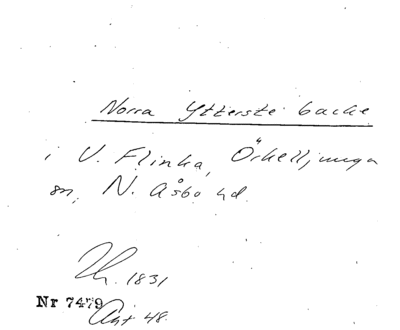 Norra Ytterste backe
i V. Flinka, Örkelljunga
sn, N. Åsbo hd.
Th. 1831
Nr 7479
Ant 48.